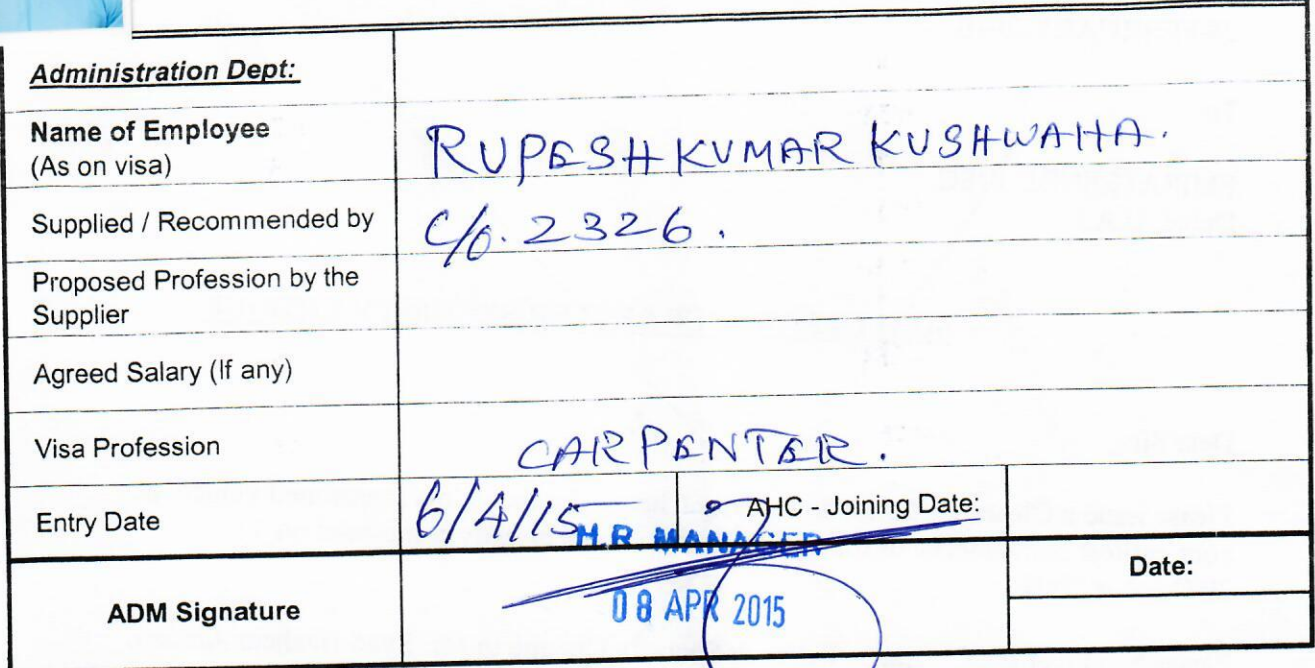 Administration Dept:
Name of Employee
(As on visa)
RUPESH KUMAR KUSHWAHA.
Supplied / Recommended by
C/o. 2326.
Proposed Profession by the
Supplier
Agreed Salary (If any)
Visa Profession
CARPENTER.
Entry Date
6/4/15
AHC - Joining Date:
H.R. MANAGER
ADM Signature
08 APR 2015
Date: